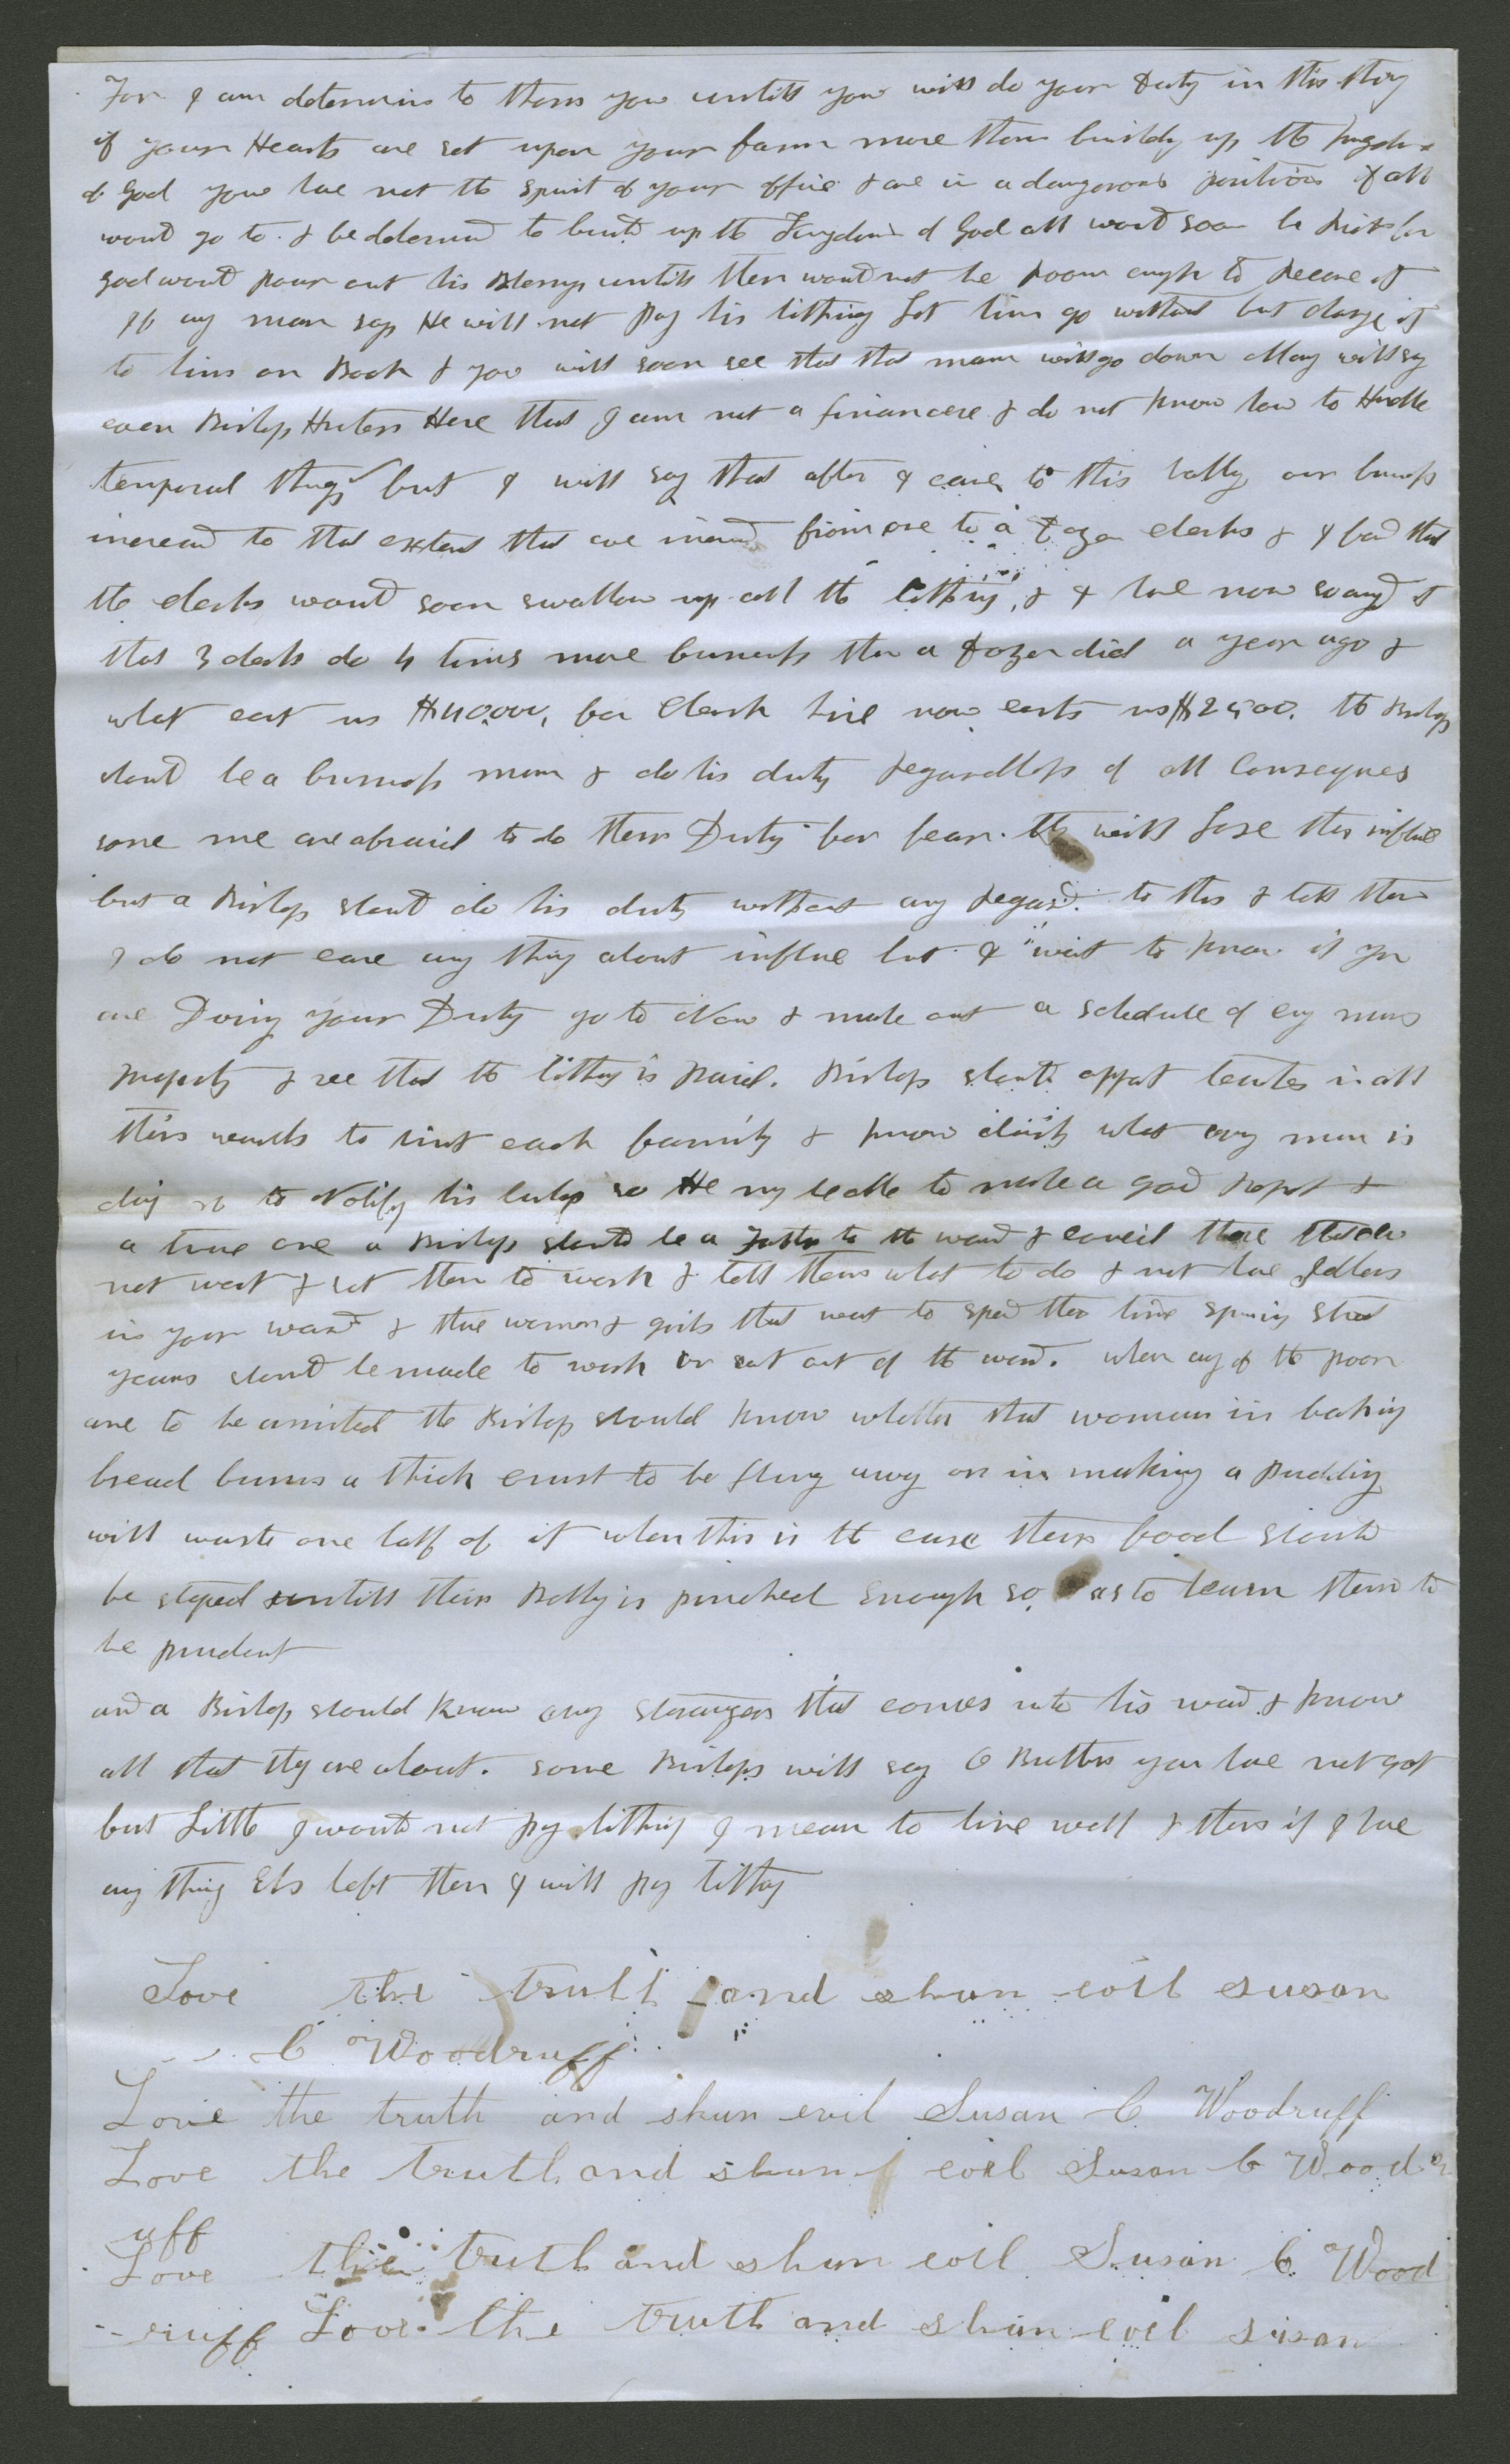 For I am determins to thors you untill you will do your Duty in this thing
if your Hearts are set upon your farm more than buildg up the kingdom
of God you have not the spirit of your office & are in a dangerous position if all
would go to & be determind to build up the Kingdom of God all would soon be right for
God would pour out his Blessings untill ther would not be room enough to receive it
If any man says He will not pay his tithing Let him go without but charge it
to him on Book & you will soon see that that man will go down Many will say
even Bishop Hunter Here that I am not a financere & do not know how to Handle
temporal things but I will say that after I came to this vally our business
increasd to that extent that we incrasd from one to a Dozen clerks & I found that
the clerks would soon swallow up all the tithing, & I have now so arangd it
that 3 clerks do 4 times more business than a Dozen did a year ago &
what cost us $10,000, for Clerk hire now costs us $2500. the Bishop
should be a business man & do his duty regardless of all Conseques
some me are afraid to do ther Duty for fear thy will lose ther influe
but a Bishop should do his duty without any regard to this & tell them
I do not care any thing about influe but I want to know if you
are Doing your Duty go to Now & make out a schedule of evry mans
property & see that the tithing is paid. Bishops should appot teachers in all
thir wards to visit each family & know daily what evry man is
doing so to Notify his bishop so He may be able to make a good Report &
a true one a Bishop should be a Father to the ward & council those that do
not work & set them to work & tell them what to do & not have Idlers
in your ward & those women & girls that want to spend ther time spining street
yearns should be made to work or cut out of the ward. when any of the poor
are to be assisted the Bishop should know whether that woman in baking
bread burns a thick crust to be flung away or in making a pudding
will waste one half of it when this is the case their food should
be stoped untill their Belly is pinched Enough so as to learn them to
be prudent
and a Bishop should know evry stranger that comes into his ward & know
all that thy are about. some Bishops will say O Brother you have not got
but Little I would not pay tithing I mean to live well & then if I have
any thing Els left then I will pay tithing
Love the truth and shun evil susan
C Woodruff
Love the truth and shun evil Susan C Woodruff
Love the truth and shun evil Susan C Woodr
uff
Love the truth and shun evil Susan C. Wood
ruff Love the truth and shun evil susan